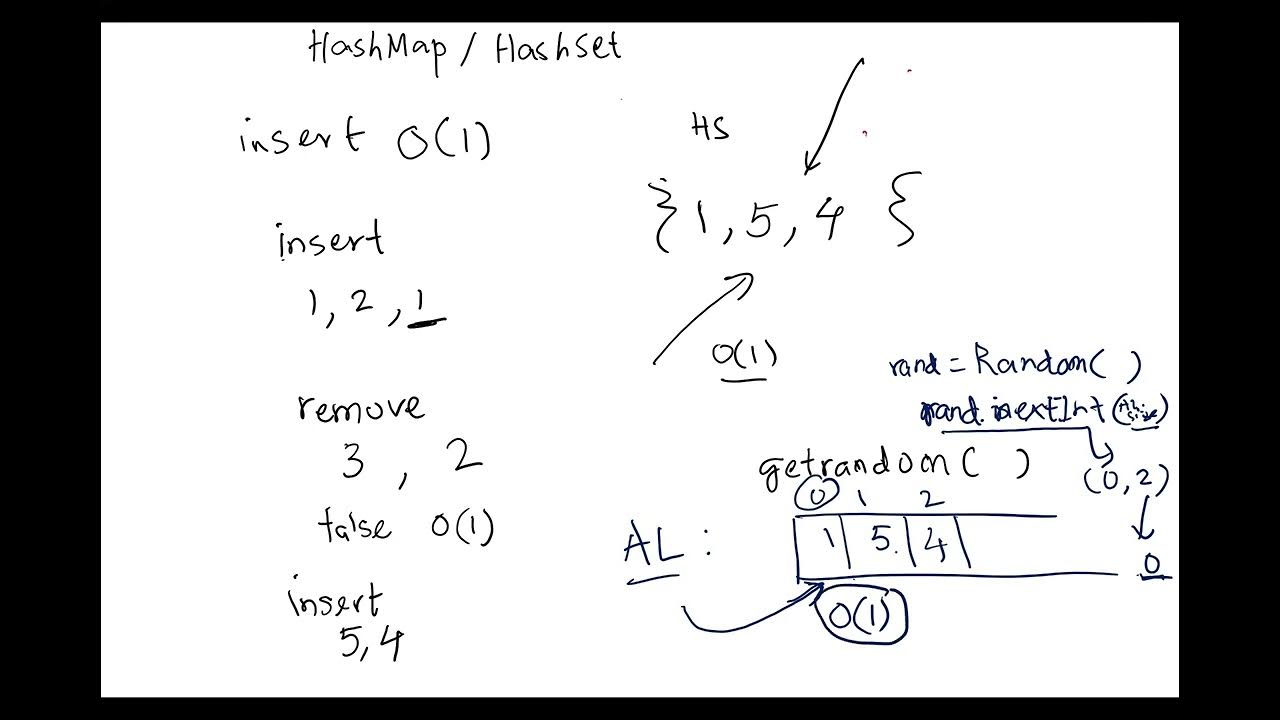 HashMap / HashSet
insert O(1)
HS
{1, 5, 4}
insert
1, 2, 1
O(1)
rand = Random( )
rand.nextInt( )
remove
3 , 2
getrandom( )
(0, 2)
0 1 2
false O(1)
AL : 1 5 4
0
insert
5, 4
O(1)